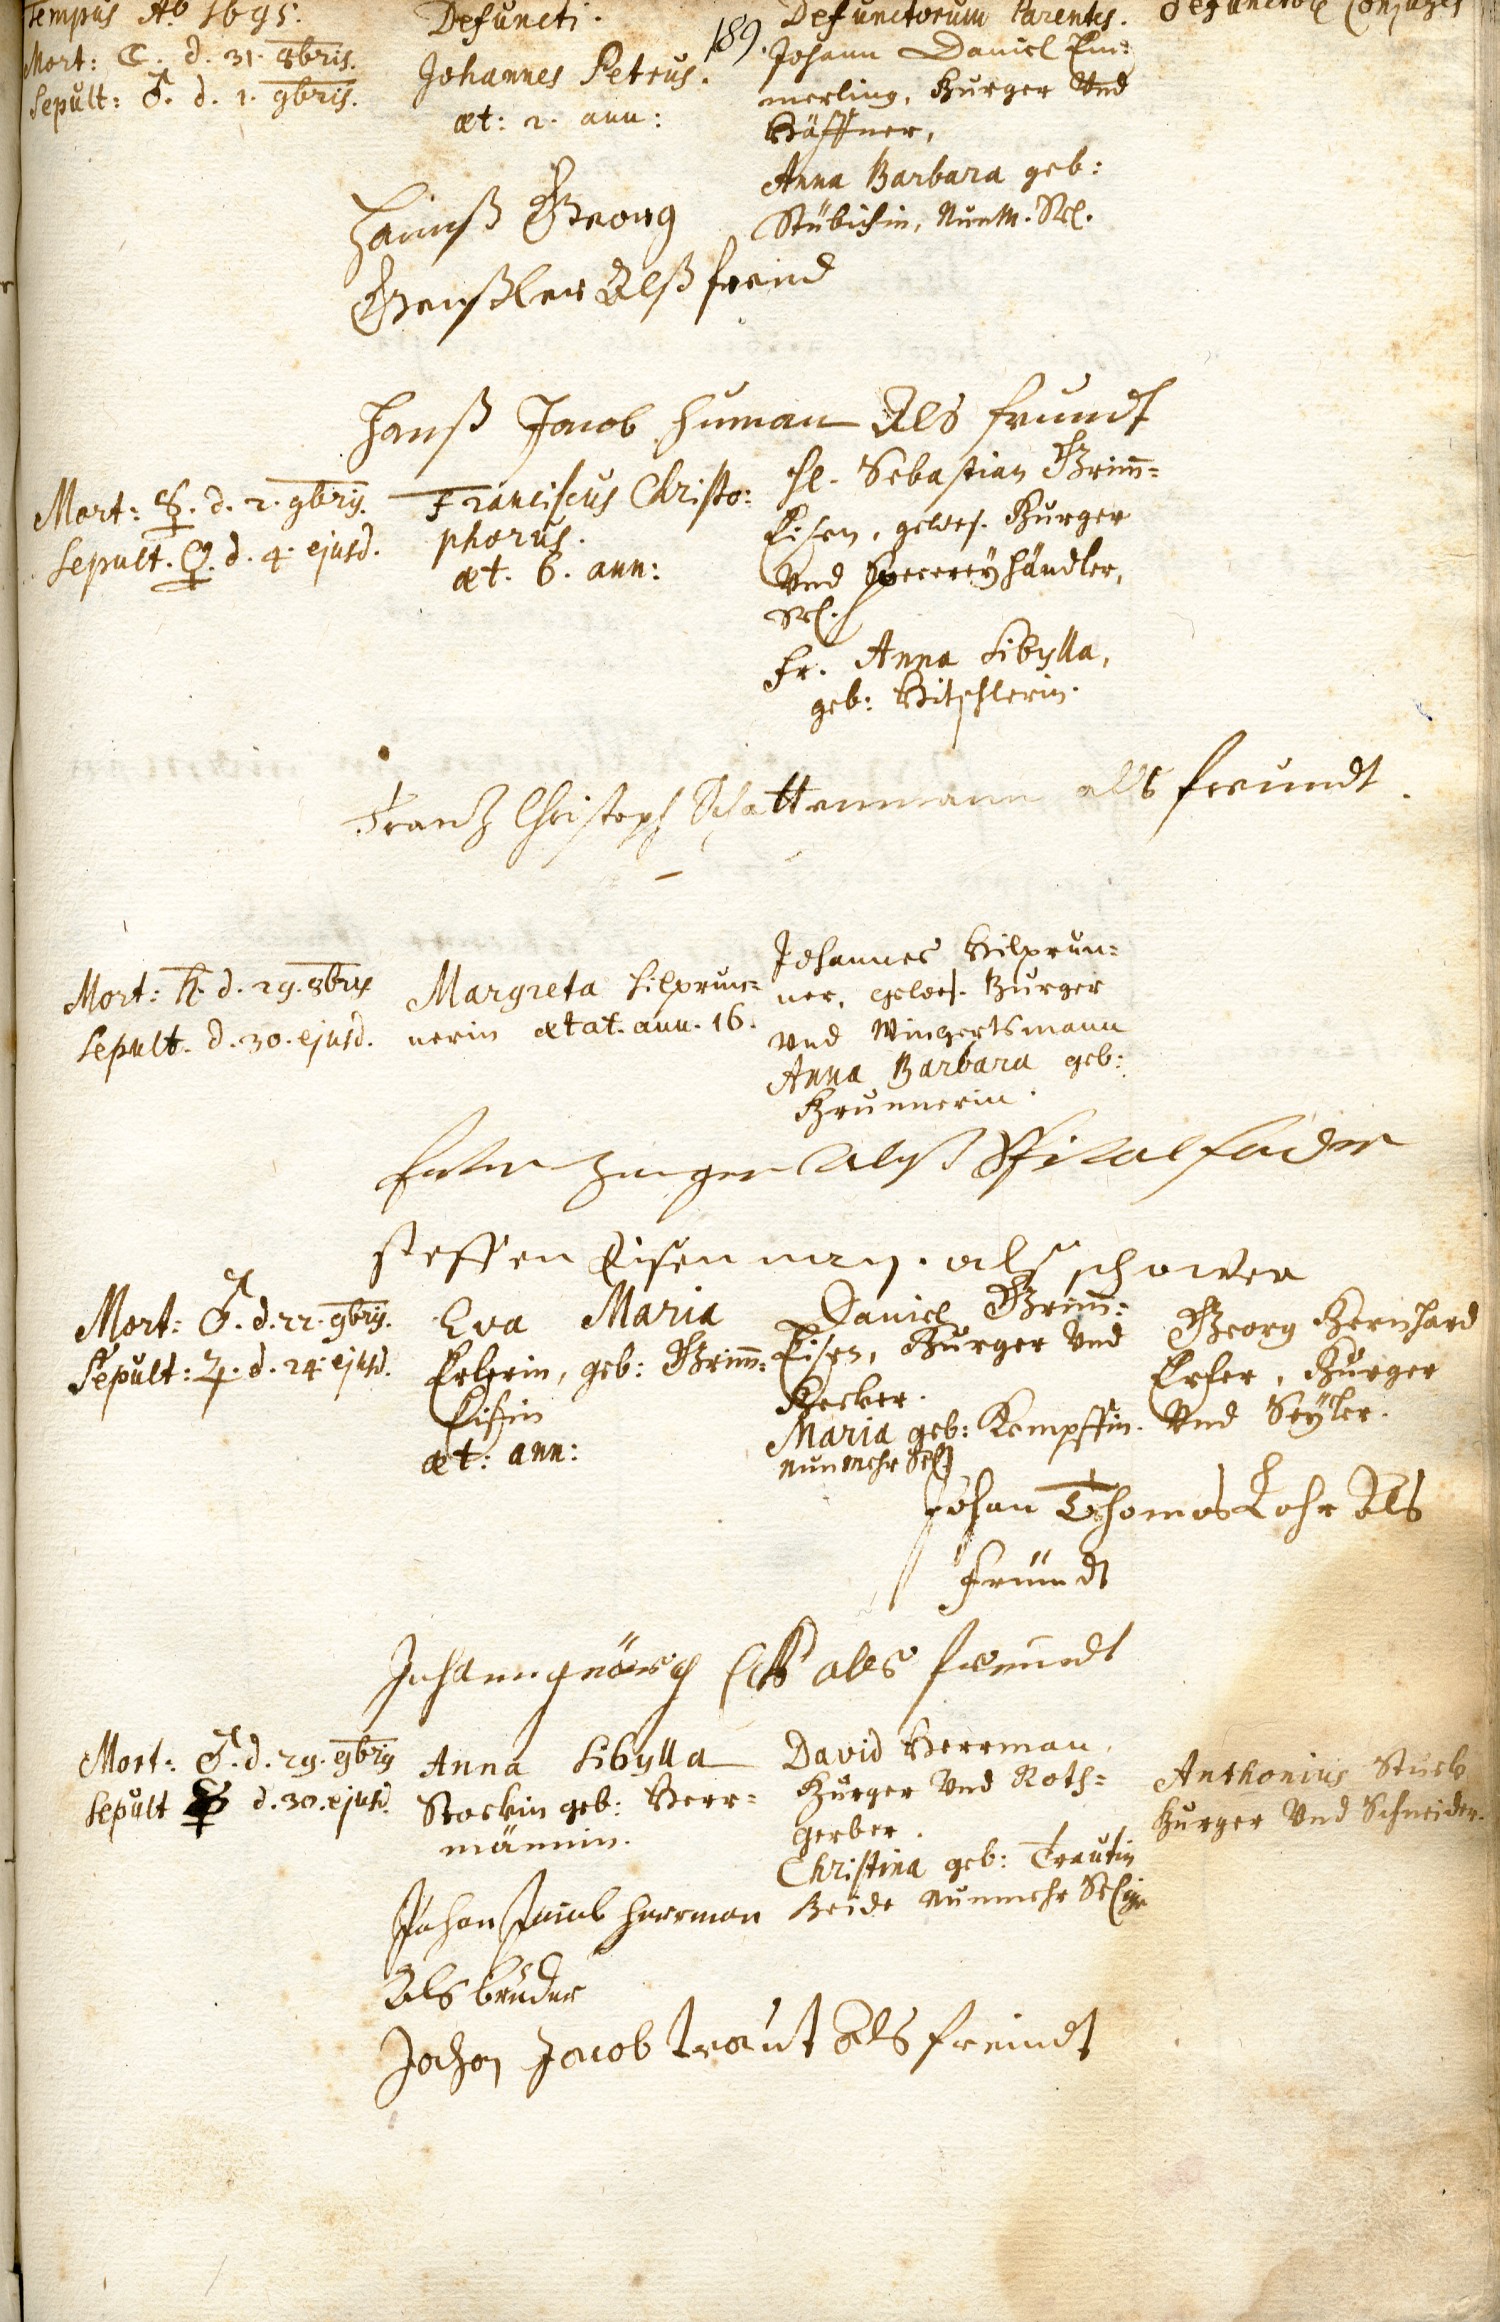 Tempus Aō 1695.
Defuncti.
189.
Defunctorum Parentes.
Defunctorū Conjuges
Mort: ☾. d. 31. 8bris.
Sepult: ♂. d. 1. 9bris.
Johannes Petrus.
æt: 2. ann:
Johann Daniel Em=
merling, Burger Vnd
Häffner,
Anna Barbara geb:
Stübichin, Nunm. Sel.
Hannß Georg
Genßler Alß freind
Hanß Jacob Human Als frundt
Mort: ☿. d. 2. 9bris.
Sepult. ♀. d. 4. ejusd.
Franciscus Christo=
phorus.
æt. 6. ann:
H. Sebastian Grim̄=
Eisen, gewes. Burger
Vnd Specereÿ händler,
Sel.
Fr. Anna Sibylla,
geb: Hitschlerin.
Frantz Christoph Schattenmann alls freundt.
Mort: ♄. d. 29. 8bris
Sepult. d. 30. ejusd.
Margreta Hilprun=
nerin ætat. ann. 16.
Johannes Hilprun=
ner, gewes. Burger
Vnd Wingertsmann
Anna Barbara geb:
Brunnerin.
alß Spital fader
steffen Eisenman. als schower
Mort: ♂. d. 22. 9bris.
Sepult: ♃. d. 24 ejusd.
Eva Maria
Erferin, geb: Grim̄=
Eißin
æt: ann:
Daniel Grim̄=
Eisen, Burger Vnd
Becker.
Maria geb: Kempffin.
nunmehr Sel.
Georg Bernhard
Erfer, Burger
Vnd Seÿler.
Johan Thomas Lohr Als
Fründt
Johann geörg als freundt
Mort: ♂. d. 29. 9bris
Sepult ☿ d. 30. ejusd.
Anna Sibylla
Stockin geb: Herr=
männin.
David Herrman,
Burger Vnd Roth=
gerber.
Christina geb: Trautin
Beide nunmehr Selige
Anthonius Stuck
Burger Vnd Schneider.
Johan Jacob Herrman
Als bruder
Johan Jacob traut Als freindt